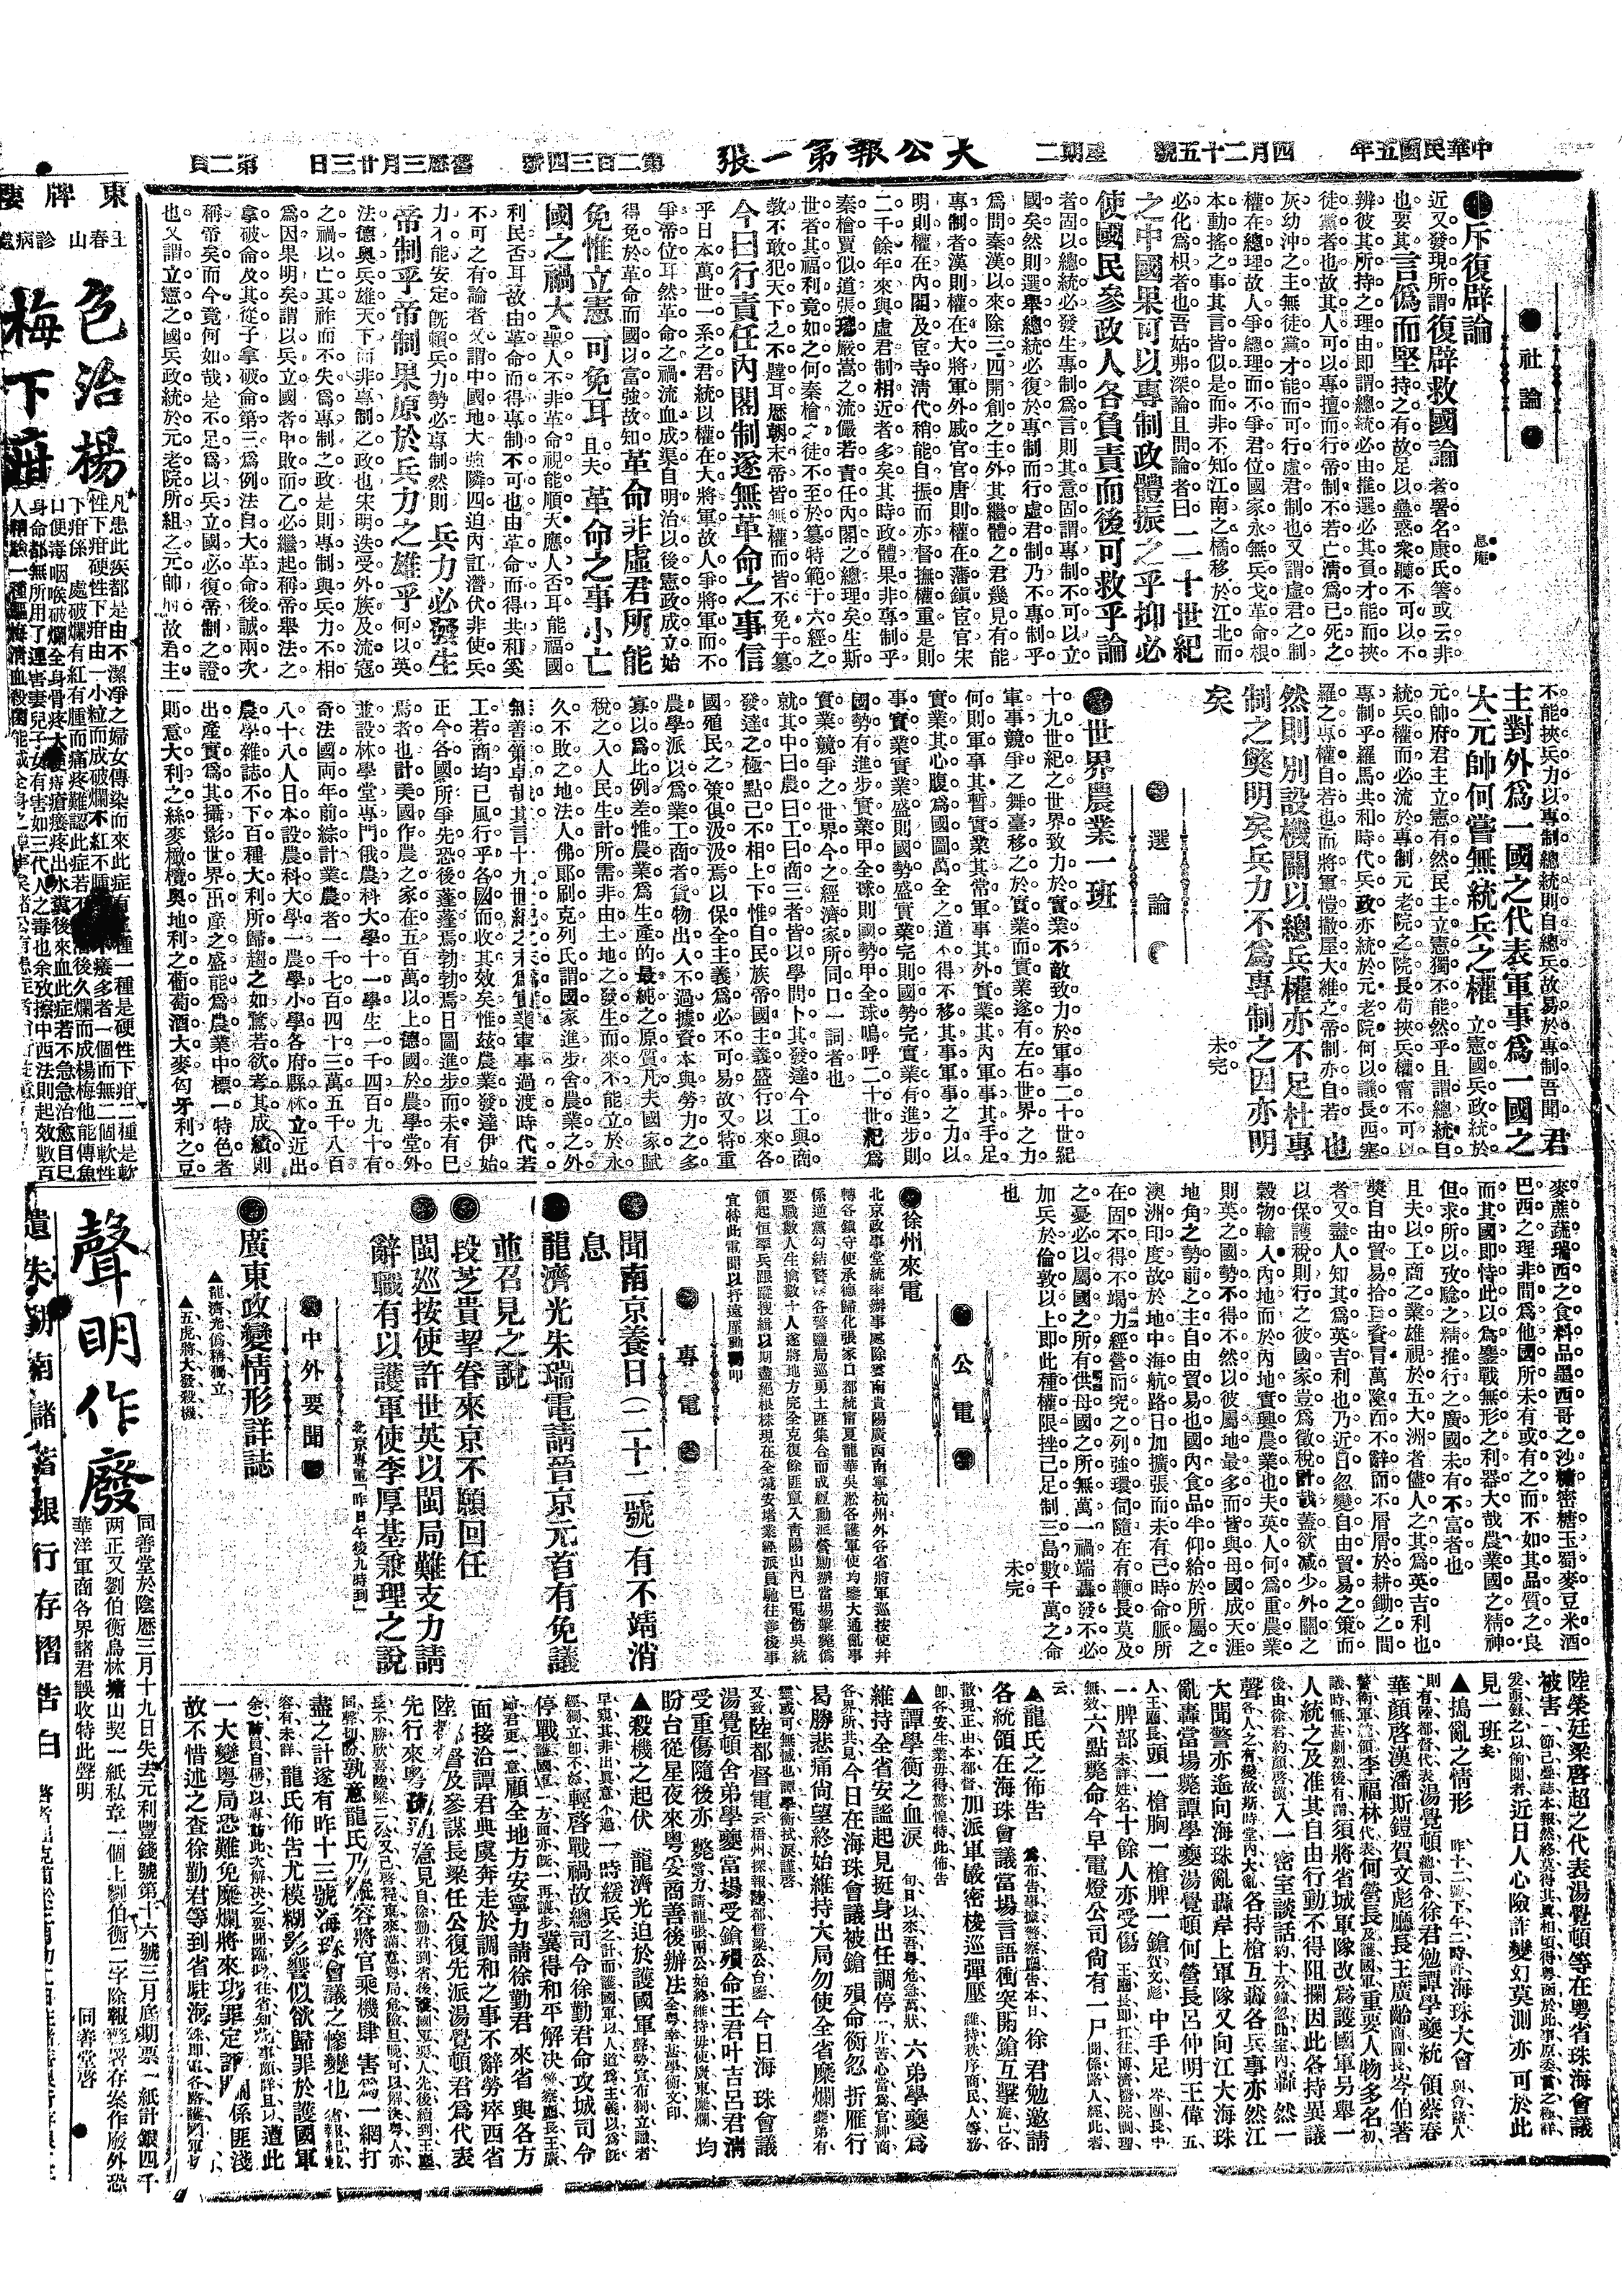 中華民國五年　四月二十五號　星期二　大公報第一張　第二百三四號　舊歷三月廿三日　第二頁
社論
●斥復辟論
息庵
近又發現所謂復辟救國論者署名康氏箸或云非
也要其言僞而堅持之有故足以蠱惑衆聽不可以不
辨彼其所持之理由即謂總統必由推選必其負才能而挾
徒黨者也故其人可以專擅而行帝制不若亡淸爲已死之
灰幼沖之主無徒黨才能而可行虛君制也又謂虛君之制
權在總理故人爭總理而不爭君位國家永無兵戈革命根
本動搖之事其言皆似是而非不知江南之橘移於江北而
必化爲枳者也吾姑弗深論且問論者曰二十世紀
之中國果可以專制政體振之乎抑必
使國民參政人各負責而後可救乎論
者固以總統必發生專制爲言則其意固謂專制不可以立
國矣然則選舉總統必復於專制而行虛君制乃不專制乎
爲問秦漢以來除三四開創之主外其繼體之君幾見有能
專制者漢則權在大將軍外戚官官唐則權在藩鎭宦官宋
明則權在內閣及宦寺淸代稍能自振而亦督撫權重是則
二千餘年來與虛君制相近者多矣其時政體果非專制乎
秦檜賈似道張璁嚴嵩之流儼若責任內閣之總理矣生斯
世者其福利竟如之何秦檜之徒不至於簒特範于六經之
敎不敢犯天下之不韙耳歷朝末帝皆無權而皆不免于簒
今日行責任內閣制遂無革命之事信
乎日本萬世一系之君統以權在大將軍故人爭將軍而不
爭帝位耳然革命之禍流血成渠自明治以後憲政成立始
得免於革命而國以富強故知革命非虛君所能
免惟立憲可免耳且夫革命之事小亡
國之禍大聖人不非革命視能順天應人否耳能福國
利民否耳故由革命而得專制不可也由革命而得共和奚
不可之有論者又謂中國地大強隣四迫內訌潛伏非使兵
力不能安定旣賴兵力勢必專制然則兵力必發生
帝制乎帝制果原於兵力之雄乎何以英
法德奥兵雄天下而非專制之政也宋明迭受外族及流寇
之禍以亡其祚而不失爲專制之政是則專制與兵力不相
爲因果明矣謂以兵立國者甲敗而乙必繼起稱帝舉法之
拿破侖及其從子拿破侖第三爲例法自大革命後誠兩次
稱帝矣而今竟何如哉是不足爲以兵立國必復帝制之證
也又謂立憲之國兵政統於元老院所組之元帥府故君主
不能挾兵力以專制總統則自總兵故易於專制吾聞君
主對外爲一國之代表軍事爲一國之
大元帥何嘗無統兵之權立憲國兵政統於
元帥府君主立憲有然民主立憲獨不能然乎且謂總統自
統兵權而必流於專制元老院之院長苟挾兵權甯不可以
專制乎羅馬共和時代兵政亦統於元老院何以議長西塞
羅之專權自若也而將軍愷撒屋大維之帝制亦自若也
然則別設機關以總兵權亦不足杜專
制之獘明矣兵力不爲專制之因亦明
矣
未完
選論
●世界農業一班
十九世紀之世界致力於實業不敵致力於軍事二十世紀
軍事競爭之舞臺移之於實業而實業遂有左右世界之力
何則軍事其暫實業其常軍事其外實業其內軍事其手足
實業其心腹爲國圖萬全之道不得不移其事軍事之力以
事實業實業盛則國勢盛實業完則國勢完實業有進步則
國勢有進步實業甲全球則國勢甲全球嗚呼二十世紀爲
實業競爭之世界今之經濟家所同口一詞者也
就其中曰農曰工曰商三者皆以學問卜其發達今工與商
發達之極點已不相上下惟自民族帝國主義盛行以來各
國殖民之策俱汲汲焉以保全主義爲必不可易故又特重
農學派以爲業工商者貨物出人不過據資本與勞力之多
寡以爲比例差惟農業爲生產的最純之原質凡夫國家賦
稅之入人民生計所需非由土地之發生而來不能立於永
久不敗之地法人佛郎刻克列氏謂國家進步舍農業之外
無善策卓哉其言十九世紀之末爲實業軍事過渡時代若
工若商均已風行乎各國而收其效矣惟玆農業發達伊始
正今各國所爭先恐後蓬蓬焉勃勃焉日圖進步而未有已
焉者也計美國作農之家在五百萬以上德國於農學堂外
並設林學堂專門俄農科大學十一學生一千四百九十有
奇法國兩年前綜計業農者一千七百四十三萬五千八百
八十八人日本設農科大學一農學小學各府縣林立近出
農學雜誌不下百種大利所歸趨之如鶩若欲考其成績則
出產實爲其攝影世界出產之盛能爲農業中標一特色者
則意大利之絲麥橄欖奥地利之葡萄酒大麥匈牙利之豆
麥蔗蔬瑞西之食料品墨西哥之沙糖密糖玉蜀麥豆米酒
巴西之理非間爲他國所未有或有之而不如其品質之良
而其國即恃此以爲鏖戰無形之利器大哉農業國之精神
但求所以攷驗之精推行之廣國未有不富者也
且夫以工商之業雄視於五大洲者儘人之其爲英吉利也
獎自由貿易拾巨資冒萬險而不辭而不屑屑於耕鋤之間
者又盡人知其爲英吉利也乃近日忽變自由貿易之策而
以保護稅則行之彼國家豈爲徵稅計哉蓋欲减少外關之
穀物輸入內地而於內地實興農業也夫英人何爲重農業
則英之國勢不得不然以彼屬地最多而皆與母國成天涯
地角之勢前之主自由貿易也國內食品半仰給於所屬之
澳洲印度故於地中海航路日加擴張而未有已時命脈所
在固不得不竭力經營而究之列強環伺隨在有鞭長莫及
之憂必以屬國之所有供母國之所無萬一禍端轟發不必
加兵於倫敦以上即此種權限挫已足制三島數千萬之命
也
未完
公電
●徐州來電
北京政事堂統率辦事處除雲南貴陽廣西南寧杭州外各省將軍巡按使幷
轉各鎭守使承德歸化張家口都統甯夏龍華吳淞各護軍使均鑒大通亂事
係逆黨勾結警備各營鹽局巡勇土匪集合而成經動派營勦辦當場擊斃僞
要職數人生擒數十人遂將地方完全克復餘匪竄入靑陽山內已電飭吳統
領起恒率兵跟蹤搜緝以期盡絕根株現在全境安堵業經派員馳往善後事
宜特此電聞以抒遠厪勳叩
專電
●聞南京養日（二十二號）有不靖消
息
●龍濟光朱瑞電請晉京元首有免議
並召見之說
●段芝貴挈眷來京不願回任
●閩巡按使許世英以閩局難支力請
辭職有以護軍使李厚基兼理之說
北京專電「昨日午後九時到」
中外要聞
●廣東政變情形詳誌
▲龍濟光僞稱獨立
▲五虎將大發殺機
陸榮廷梁啓超之代表湯覺頓等在粤省珠海會議
被害一節已疊誌本報然終莫得其眞相頃得粤函於此事原委言之極詳
爰亟錄之以餉閱者近日人心險詐變幻莫測亦可於此
見一班矣
▲搗亂之情形　昨十二號下午二時許海珠大會與會諸人
則有陸都督代表湯覺頓總司令徐君勉譚學夔統領蔡春
華顏啓漢潘斯鎧賀文彪廳長王廣齡商團長岑伯著
警衛軍統領李福林代表何營長及護國軍重要人物多名初
議時無甚劇烈後有謂須將省城軍隊改爲護國軍另舉一
人統之及准其自由行動不得阻攔因此各持異議
後由徐君約顏啓漢入一密室談話約十分鐘忽聞室內轟然一
聲各人之有變故斯時堂內大亂各持槍互轟各兵事亦然江
大聞警亦迤向海珠亂轟岸上軍隊又向江大海珠
亂轟當場斃譚學夔湯覺頓何營長呂仲明王偉五
人王廳長頭一槍胸一槍脾一鎗賀文彪中手足岑團長中
一脾部未詳姓名十餘人亦受傷王廳長即扛往博濟醫院調理
無效六點斃命今早電燈公司尙有一尸聞係路人經此者
云
▲龍氏之佈告　爲布告事據警察廳告本日徐君勉邀請
各統領在海珠會議當場言語衝突開鎗互擊旋已各
散現正由本都督加派軍嚴密梭巡彈壓維持秩序商民人等務
即各安生業毋得驚惶特此佈告
▲譚學衡之血淚　旬日以來吾粤危急萬狀六弟學夔爲
維持全省安謐起見挺身出任調停一片苦心當爲官紳商
各界所共見今日在海珠會議被鎗殞命衡忍折雁行
曷勝悲痛尙望終始維持大局勿使全省糜爛夔弟有
靈或可無憾也譚學衡拭淚謹啓
又致陸都督電云梧州探報陸都督梁公台鑒今日海珠會議
湯覺頓舍弟學夔當場受鎗殞命王君叶吉呂君淸
受重傷隨後亦斃當力請龍張兩公始終維持毋使廣東糜爛均
盼台從星夜來粤妥商善後辦法全粤幸甚學衡文印
▲殺機之起伏　龍濟光迫於護國軍聲勢宣布獨立識者
早窺其非出眞意不過一時緩兵之計而護國軍以人道爲主義以爲旣
經獨立即不忍輕啓戰禍故總司令徐勤君命攻城司令
停戰護國軍一方面亦旣一再讓步冀得和平解决警察廳長王廣
齡君更一意顧全地方安寧力請徐勤君來省與各方
面接洽譚君典虞奔走於調和之事不辭勞瘁西省
陸都督及參謀長梁任公復先派湯覺頓君爲代表
先行來粤疏通意見自徐勤君到省後護國軍要人先後續到王廳
長不勝欣喜陸梁二公又已啓程東來滿意粤局危險旦晚可以解決粤人亦
同聲切盼孰意龍氏乃縱容將官乘機肆害爲一網打
盡之計遂有昨十三號海珠會議之慘變也省報紙載
容有未詳龍氏佈告尤模糊影響似欲歸罪於護國軍
一大變粤局恐難免糜爛將來功罪定評關係匪淺
故不惜述之查徐勤君等到省駐海珠即軍各路護國軍
東牌樓
王春山診病處
色治楊
梅下疳
聲明作廢
同善堂於陰歷三月十九日失去元利豐錢號第十六號三月底期票一紙計銀四千
兩正又劉伯衡烏林塘山契一紙私章一個上劉伯衡二字除報警署存案作廢外恐
華洋軍商各界諸君誤收特此聲明
同善堂啓
遺失湖南儲蓄銀行存摺告白